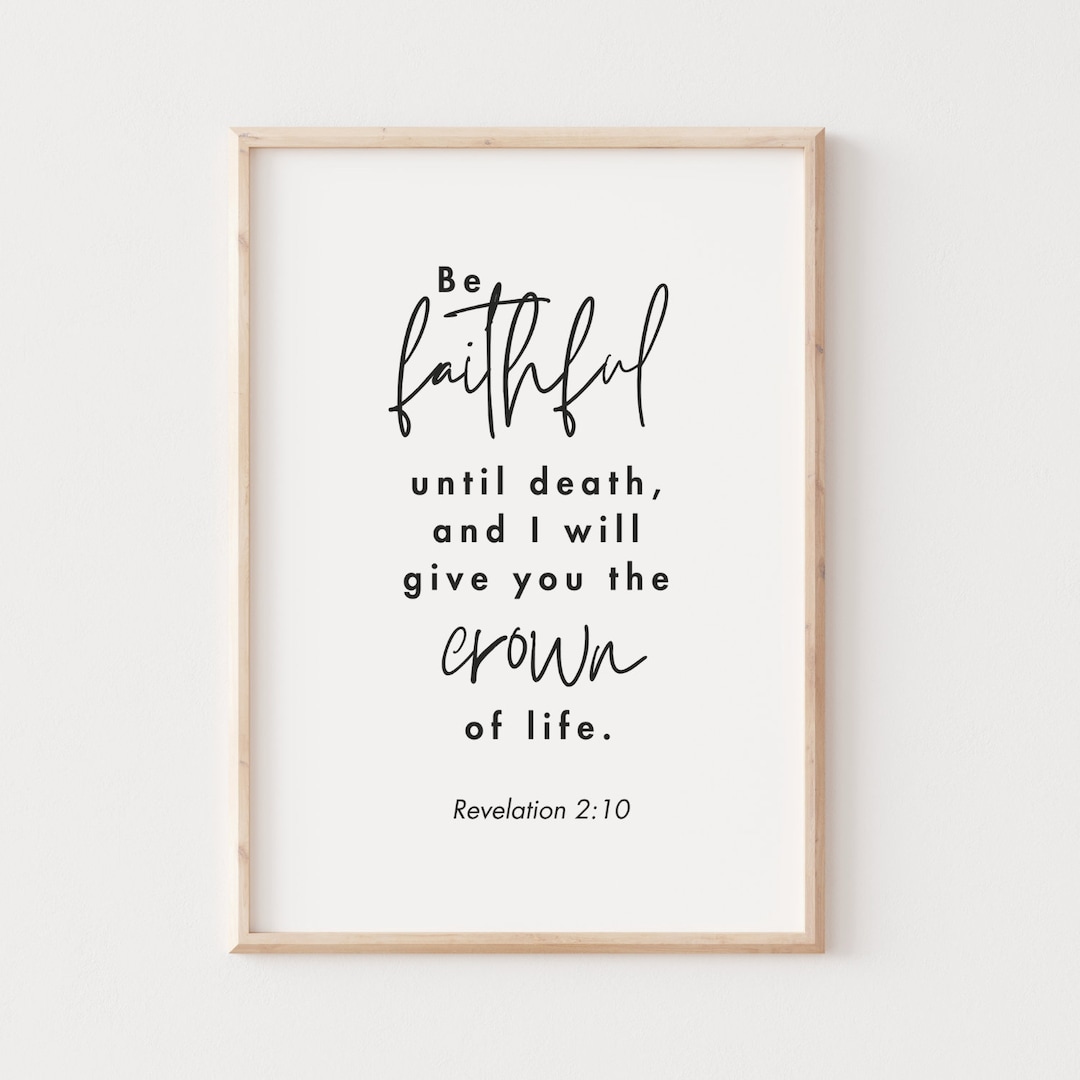 Be
faithful
until death,
and I will
give you the
crown
of life.
Revelation 2:10